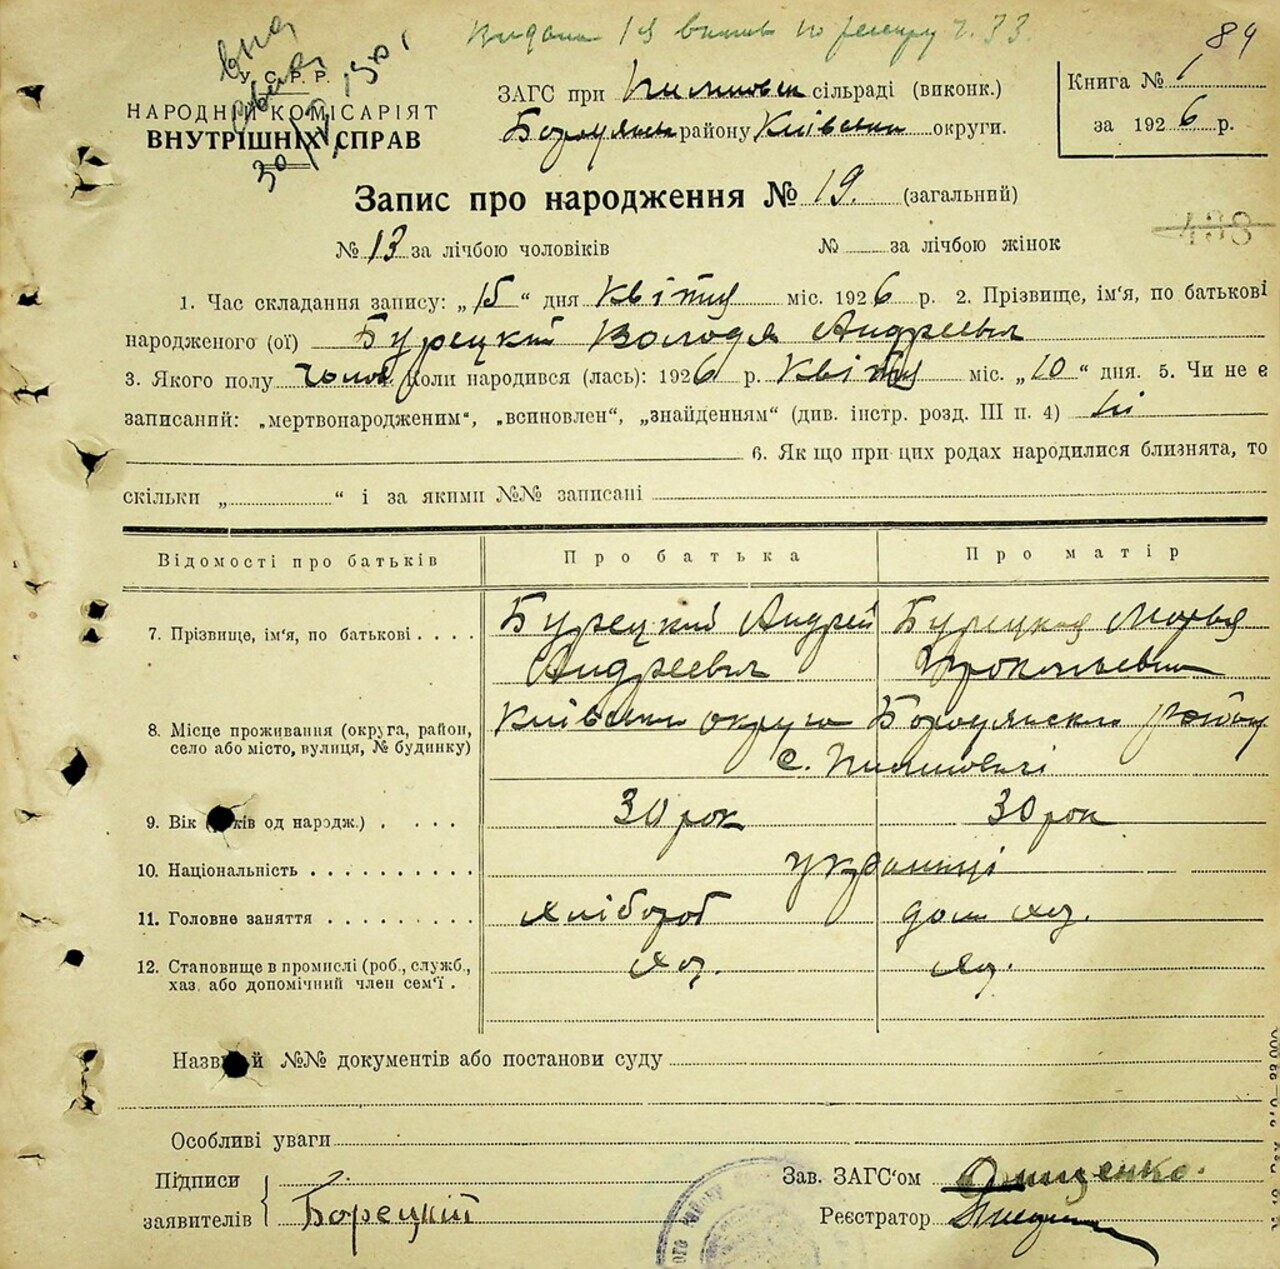 84
У.С.Р.Р.
НАРОДНІЙ КОМІСАРІЯТ
ВНУТРІШНІХ СПРАВ
ЗАГС при сільраді (виконк.)
району Київськи округи.
Книга № 1
за 1926 р.
Запис про народження № 19. (загальний)
№ 13 за лічбою чоловіків № за лічбою жінок
1. Час складання запису: „15“ дня Квітня міс. 1926 р. 2. Прізвище, ім'я, по батькові
народженого (ої) Бурецкий Володя Андреевич
3. Якого полу чолов. Коли народився (лась): 1926 р. Квітня міс. „10“ дня. 5. Чи не є
записаний: „мертвонародженим“, „всиновлен“, „знайденням“ (див. інстр. розд. III п. 4) ні
6. Якщо при цих родах народилися близнята, то
скільки „ “ і за якими №№ записані
Відомості про батьків Про батька Про матір
7. Прізвище, ім'я, по батькові . . . . Бурецкий Андрей Бурецкая Марья
Андреевич Прокопьевна
8. Місце проживання (округа, район, село або місто, вулиця, № будинку) округи Бородянски району
с.
9. Вік ків од народж.) . . . . 30 рок 30 рок
10. Національність . . . . . . . . . . українці
11. Головне заняття . . . . . . . . . хлібороб дом хоз.
12. Становище в промислі (роб., служб., хаз. або допомічний член сем'ї . хоз. хоз.
Назв й №№ документів або постанови суду
Особливі уваги
Підписи заявителів Борецкий
Зав. ЗАГС'ом Онищенко.
Реєстратор